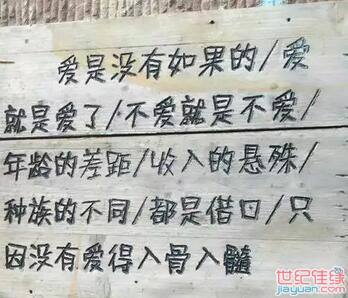 爱是没有如果的/爱
就是爱了/不爱就是不爱/
年龄的差距/收入的悬殊/
种族的不同/都是借口/只
因没有爱得入骨入髓
世纪佳缘
jiayuan.com